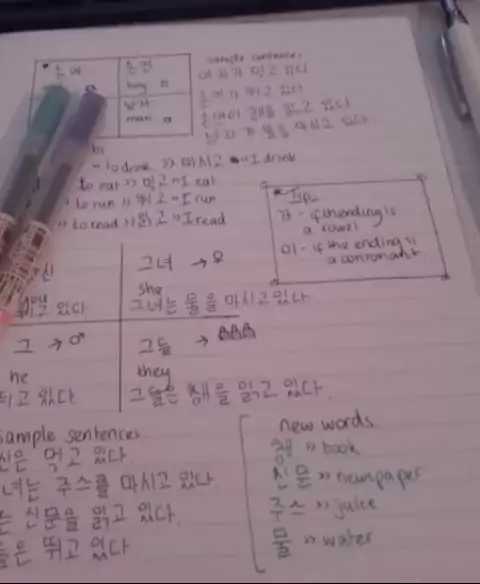 소녀 소년
boy
남자
man
sample sentences
여자가 먹고 있다
소녀가 뛰고 있다
소년이 책을 읽고 있다
남자가 물을 마시고 있다.
to drink >> 마시고 "I drink
to eat >> 먹고 "I eat
" to run >> 뛰고 "I run
" to read >> 읽고 "I read
Tip
가 - if the ending is
a vowel
이 - if the ending is
a consonant
신
you
뛰고 있다
그녀 → ♀
she
그녀는 물을 마시고 있다
그 → ♂
he
뛰고 있다
그들 →
they
그들은 책을 읽고 있다.
sample sentences
신은 먹고 있다
녀는 주스를 마시고 있다
는 신문을 읽고 있다.
들은 뛰고 있다
new words
책 >> book
신문 >> newspaper
주스 >> juice
물 >> water